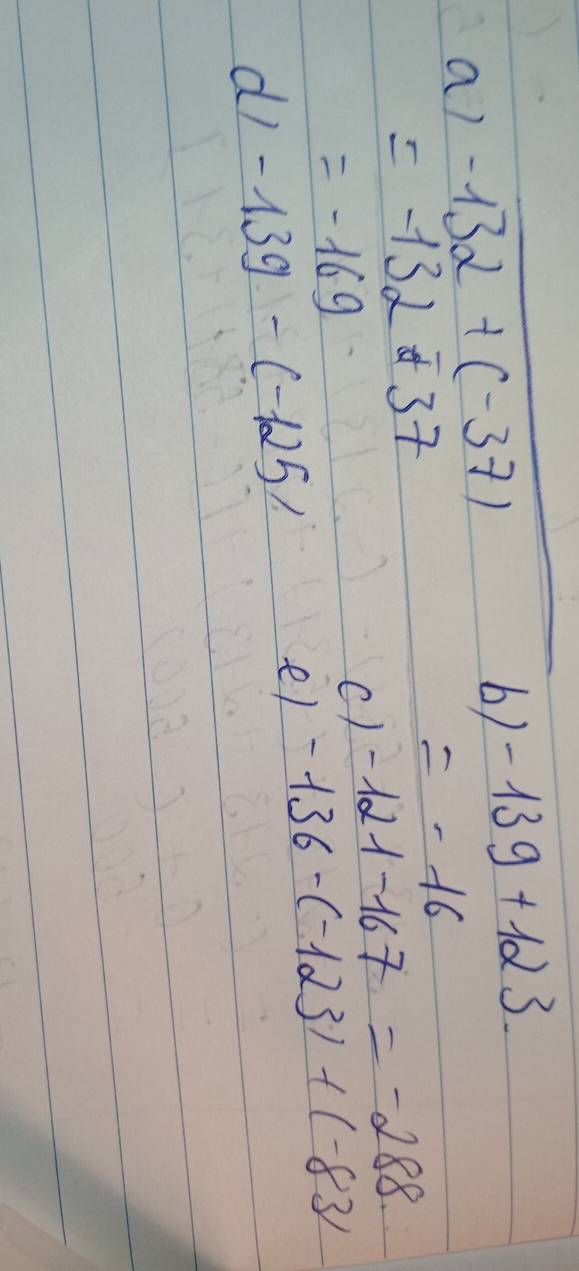 a) -132 + (-37)
= -132 - 37
= -169
b) -139 + 123
= -16
c) -121 - 167 = -288
d) -139 - (-125)
e) -136 - (-123) + (-83)